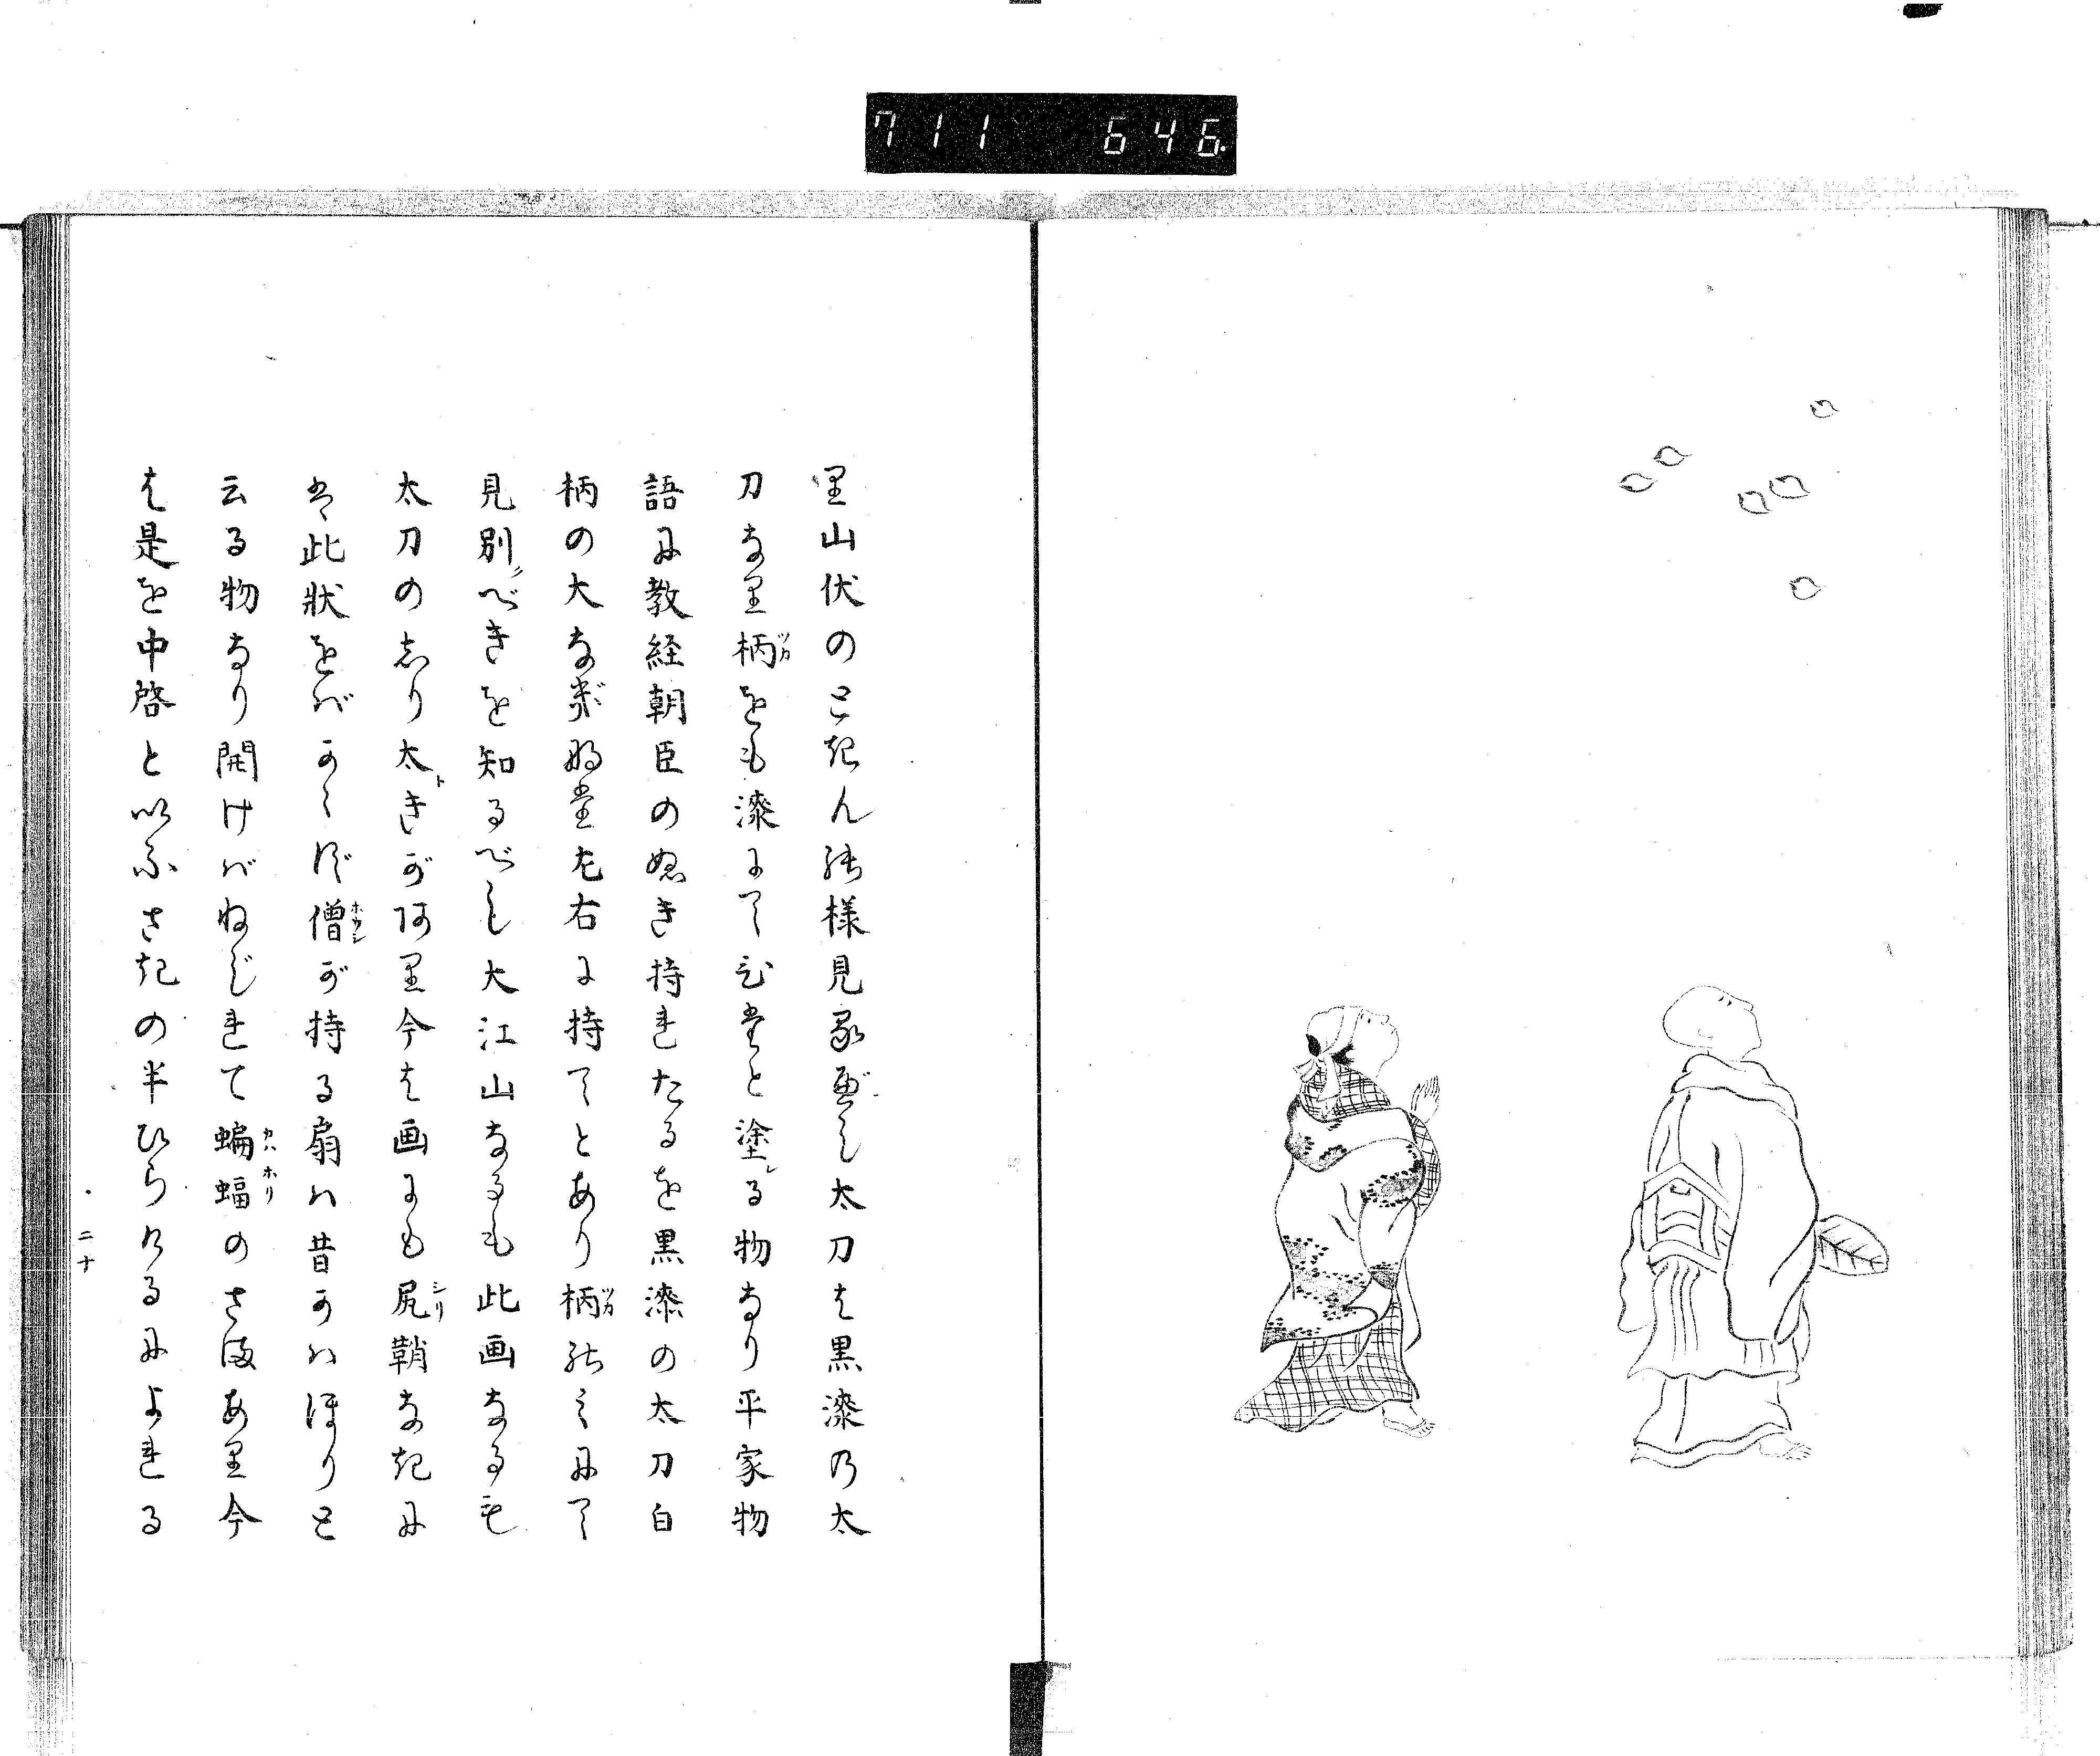 711 646
里山伏のときんの様見るべし太刀は黒漆の太
刀なり柄をも漆にてひたと塗る物なり平家物
語に教経朝臣のぬき持れたるを黒漆の太刀白
柄の大なぎなた左右に持てとあり柄のミにて
見別べきを知るべし大江山なるも此画なるも
太刀のしり太きがあり今は画にも尻鞘なきに
は此状をばかゝず僧が持る扇ハ昔かハほりと
云る物なり開けばねぢれて蝙蝠のさまあり今
は是を中啓といふさきの半ひらけるによれる
二十